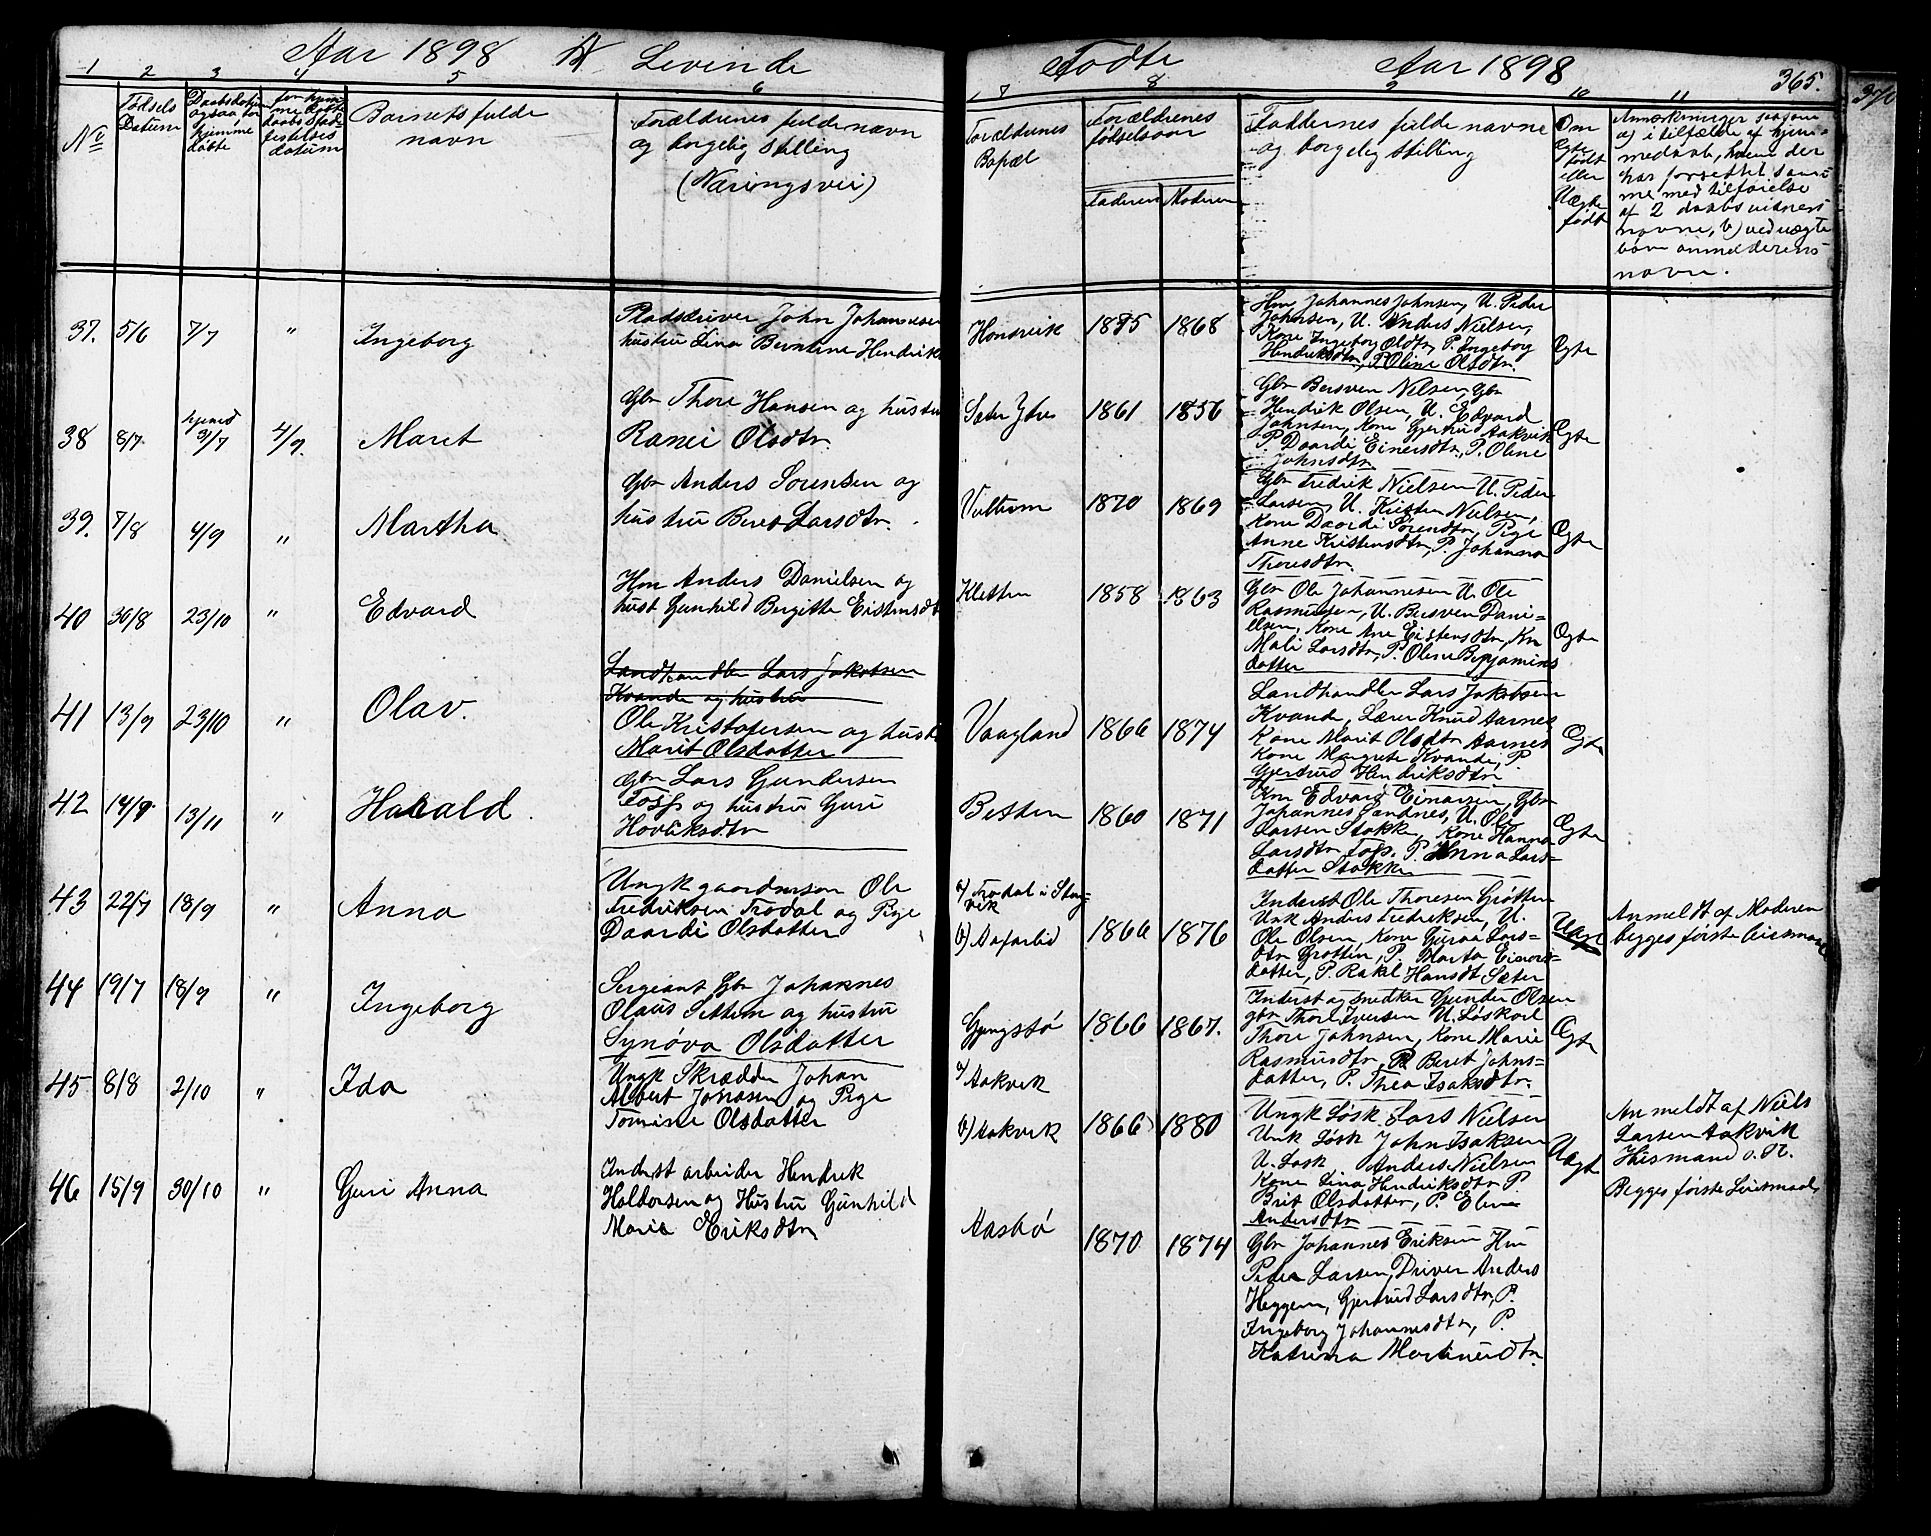 Aar 1898 A Levende Fødte Aar 1898 365.
1 2 3 4 5 6 7 8 9 10 11
No
Fødsels Datum
Barnets fulde navn
Forældrenes fulde navn og borgelig stilling (Næringsvei)
Forældrenes Bopæl
Forældrenes fødselsaar
Faderen Moderen
Faddernes fulde navne og borgelig stilling
Om Ægte født eller Uægte født
Anmærkninger saasom
a) i tilfælde af hjem-
medaab, hvem der
har forrettet sam-
me med tilføielse
af 2 daabsvidners
navne, b) ved uægte
børn anmelderens
navn.
37. 5/6 7/7 " Ingeborg
Pladsdriver John Johannesen
hustru Lina Berntine Hendriks
Hondvik 1875 1868
Hm Johannes Johnsen, U. Peder
Johnsen, U. Anders Nielsen,
Kone Ingeborg Olsdtr, P. Ingeborg
Hendriksdtr, P. Oline Olsdtr.
Ægte
38 8/7 hjemd 31/7 4/9. Maret
Gbr Thore Hansen og hustru
Ranei Olsdtr.
Sæter Ytre 1861 1856
Gbr Bersven Nilsen, Gbr
Hendrik Olsen, U. Edvard
Johnsen, Kone Gjertrud Aakvik
P. Daardi Einersdtr, P. Oline
Johnsdtr
Ægte
39. 7/8 4/9 " Martha
Gbr Anders Sørensen og
hustru Beret Larsdtr.
1870 1869
Gbr Fredrik Nielsen U. Peder
Larsen, U. Kristen Nielsen,
Kone Daardi Sørendtr, Pige
Anne Kristensdtr, P. Johanna
Thoresdtr.
Ægte
40 30/8 23/10 " Edvard
Hm Anders Danielsen og
hust Gunhild Bergitte Eistensdt
Kletten 1858 1863
Gbr Ole Johannesen U. Ole
Rasmusen, U. Bersven Dani-
elsen, Kone Ane Eistensdtr, Kn
Mali Larsdtr, P. Oline Benjamins
datter
Ægte
41 13/9 23/10 " Olav.
Landhandler Lars Jakobsen
Kvande og hustru
Ole Kristofersen og hust
Marit Olsdatter
Vaagland 1866 1874
Landhandler Lars Jakobsen
Kvande, Lærer Knud Aarnes
Kone Marit Olsdtr Aarnes
Kone Margrete Kvande, P.
Gjertrud Hendriksdtr
Ægte
42 14/9 13/11 " Harald.
Gbr Lars Gundersen
Foss og hustru Guri
Hovaksdtr
Betten 1860 1871
Km Edvard Einarsen, Gbr
Johannes Sandnes, U. Ole
Larsen Stokke, Kone Hanna
Larsdtr Foss. P. Anna Lars-
datter Stokke
Ægte
43 22/7 18/9 " Anna
Ungk gaardmson Ole
Fredriksen Trodal og Pige
Daardi Olsdatter
a) Trodal i Stang-
vik
b) Aafarlid 1866 1876
Inderst Ole Thoresen Grøtten
Unk Anders Fredriksen, U.
Ole Olsen, Kone Guraa Lars-
dtr Grøtten, P. Marta Einars-
datter, P. Rakl Hansdt Sæter
Uægt
Anmeldt af Moderen
begges første leiermaal
44 19/7 18/9 " Ingeborg
Sergeant Gbr Johannes
Olaus Settem og hustru
Synøva Olsdatter
Gyngstø 1866 1867.
Inderst og smedker Gunder Olsen
gbr Thorl Iversen U. Løskarl
Thore Johnsen, Kone Marie
Rasmusdtr, P. Beret Johns-
datter, P. Thea Isaksdtr.
Ægt
45 8/8 2/10 " Ida
Ungk Skrædder Johan
Albert Jonasen og Pige
Tomine Olsdatter
a) Aakvik
b) Aakvik 1866 1880
Ungk Løsk Lars Nielsen
Unk Løsk John Isaksen
U. Løsk Anders Nielsen
Kone Lina Hendriksdtr P
Brit Olsdatter, P. Eline
Andersdtr
Uægt
Anmeldt af Niels
Larsen Aakvik
Husmand s. R.
Begges første Leiermaal
46 15/9 30/10 " Guri Anna
Inderst arbeider Hendrik
Haldorsen og Hustru Gunhild
Marie Eriksdtr
Aasbø 1870 1874
Gbr Johannes Eriksen Hm
Peder Larsen, Driver Anders
Heggem, Gjertrud Larsdtr, P.
Ingeborg Johannesdtr, P.
Katrina Martinusdtr